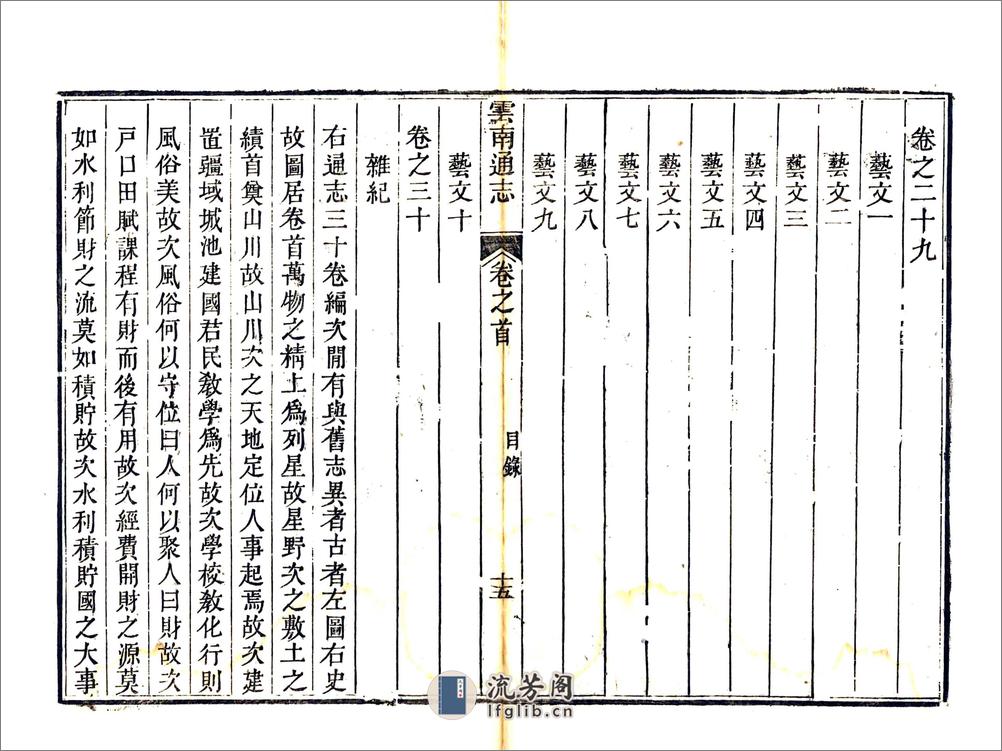 卷之二十九
藝文一
藝文二
藝文三
藝文四
藝文五
藝文六
藝文七
藝文八
藝文九
雲南通志
卷之首
目錄
十五
藝文十
卷之三十
雜紀
右通志三十卷編次閒有與舊志異者古者左圖右史
故圖居卷首萬物之精上爲列星故星野次之敷土之
績首奠山川故山川次之天地定位人事起焉故次建
置疆域城池建國君民敎學爲先故次學校敎化行則
風俗美故次風俗何以守位曰人何以聚人曰財故次
戸口田賦課程有財而後有用故次經費開財之源莫
如水利節財之流莫如積貯故次水利積貯國之大事
流芳阁
lfglib.cn